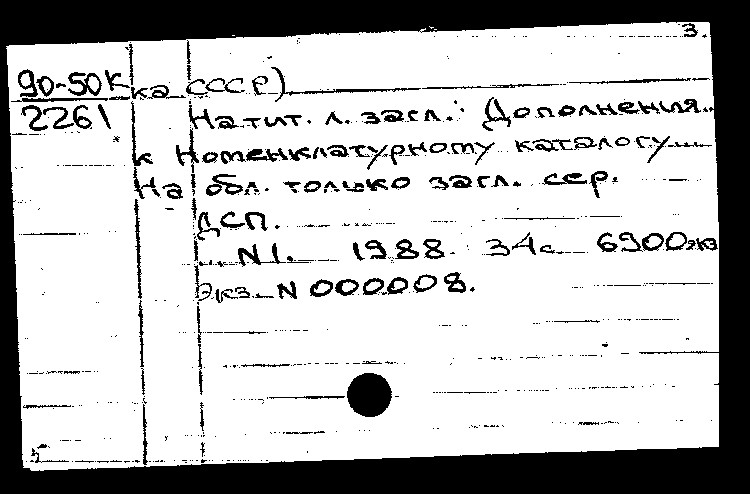 3.
90-50К ка СССР)
2261 На тит. л. загл.: Дополнения..
к Номенклатурному каталогу...
На обл. только загл. сер.
ДСП.
... N1. 1988. 34с. 6900экз
Экз. N 000008.
5